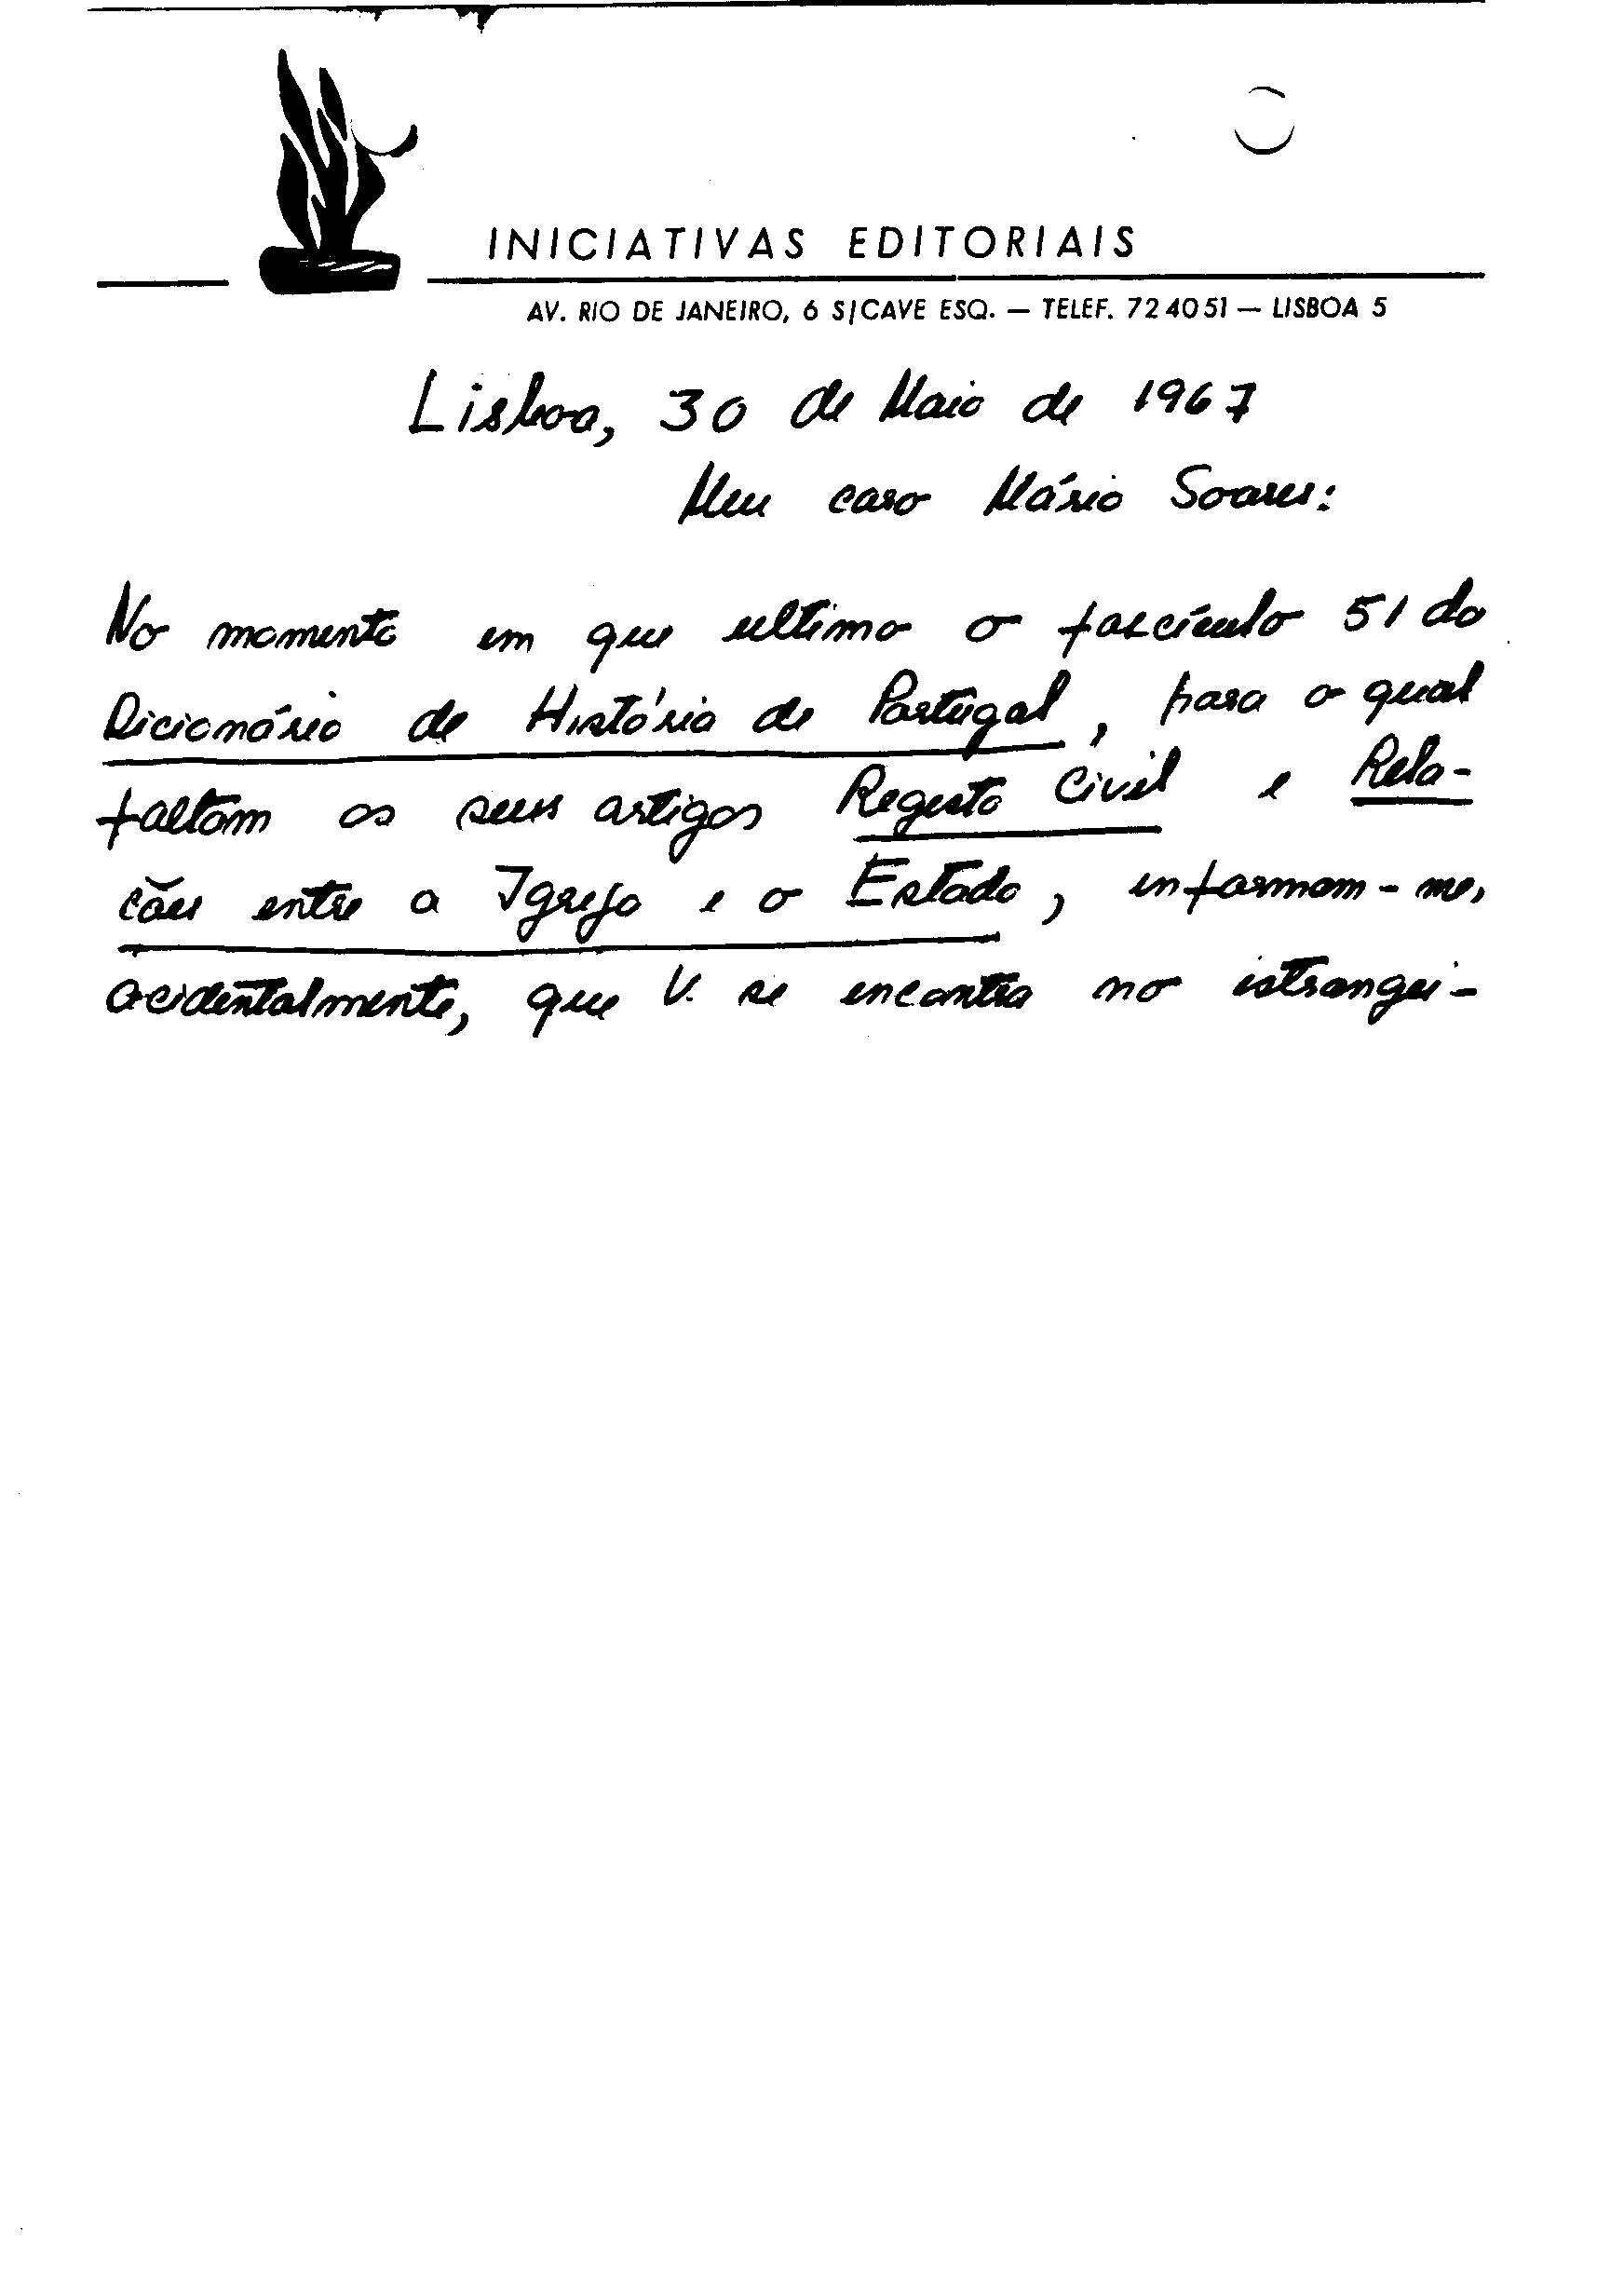 INICIATIVAS EDITORIAIS
AV. RIO DE JANEIRO, 6 S/CAVE ESQ. — TELEF. 72 40 51 — LISBOA 5
Lisboa, 30 de Maio de 1967
Meu caro Mário Soares:
No momento em que ultimo o fascículo 51 do
Dicionário de História de Portugal, para o qual
faltam os seus artigos Registo Civil e Rela-
ções entre a Igreja e o Estado, informam-me,
acidentalmente, que V. se encontra no estrangei-